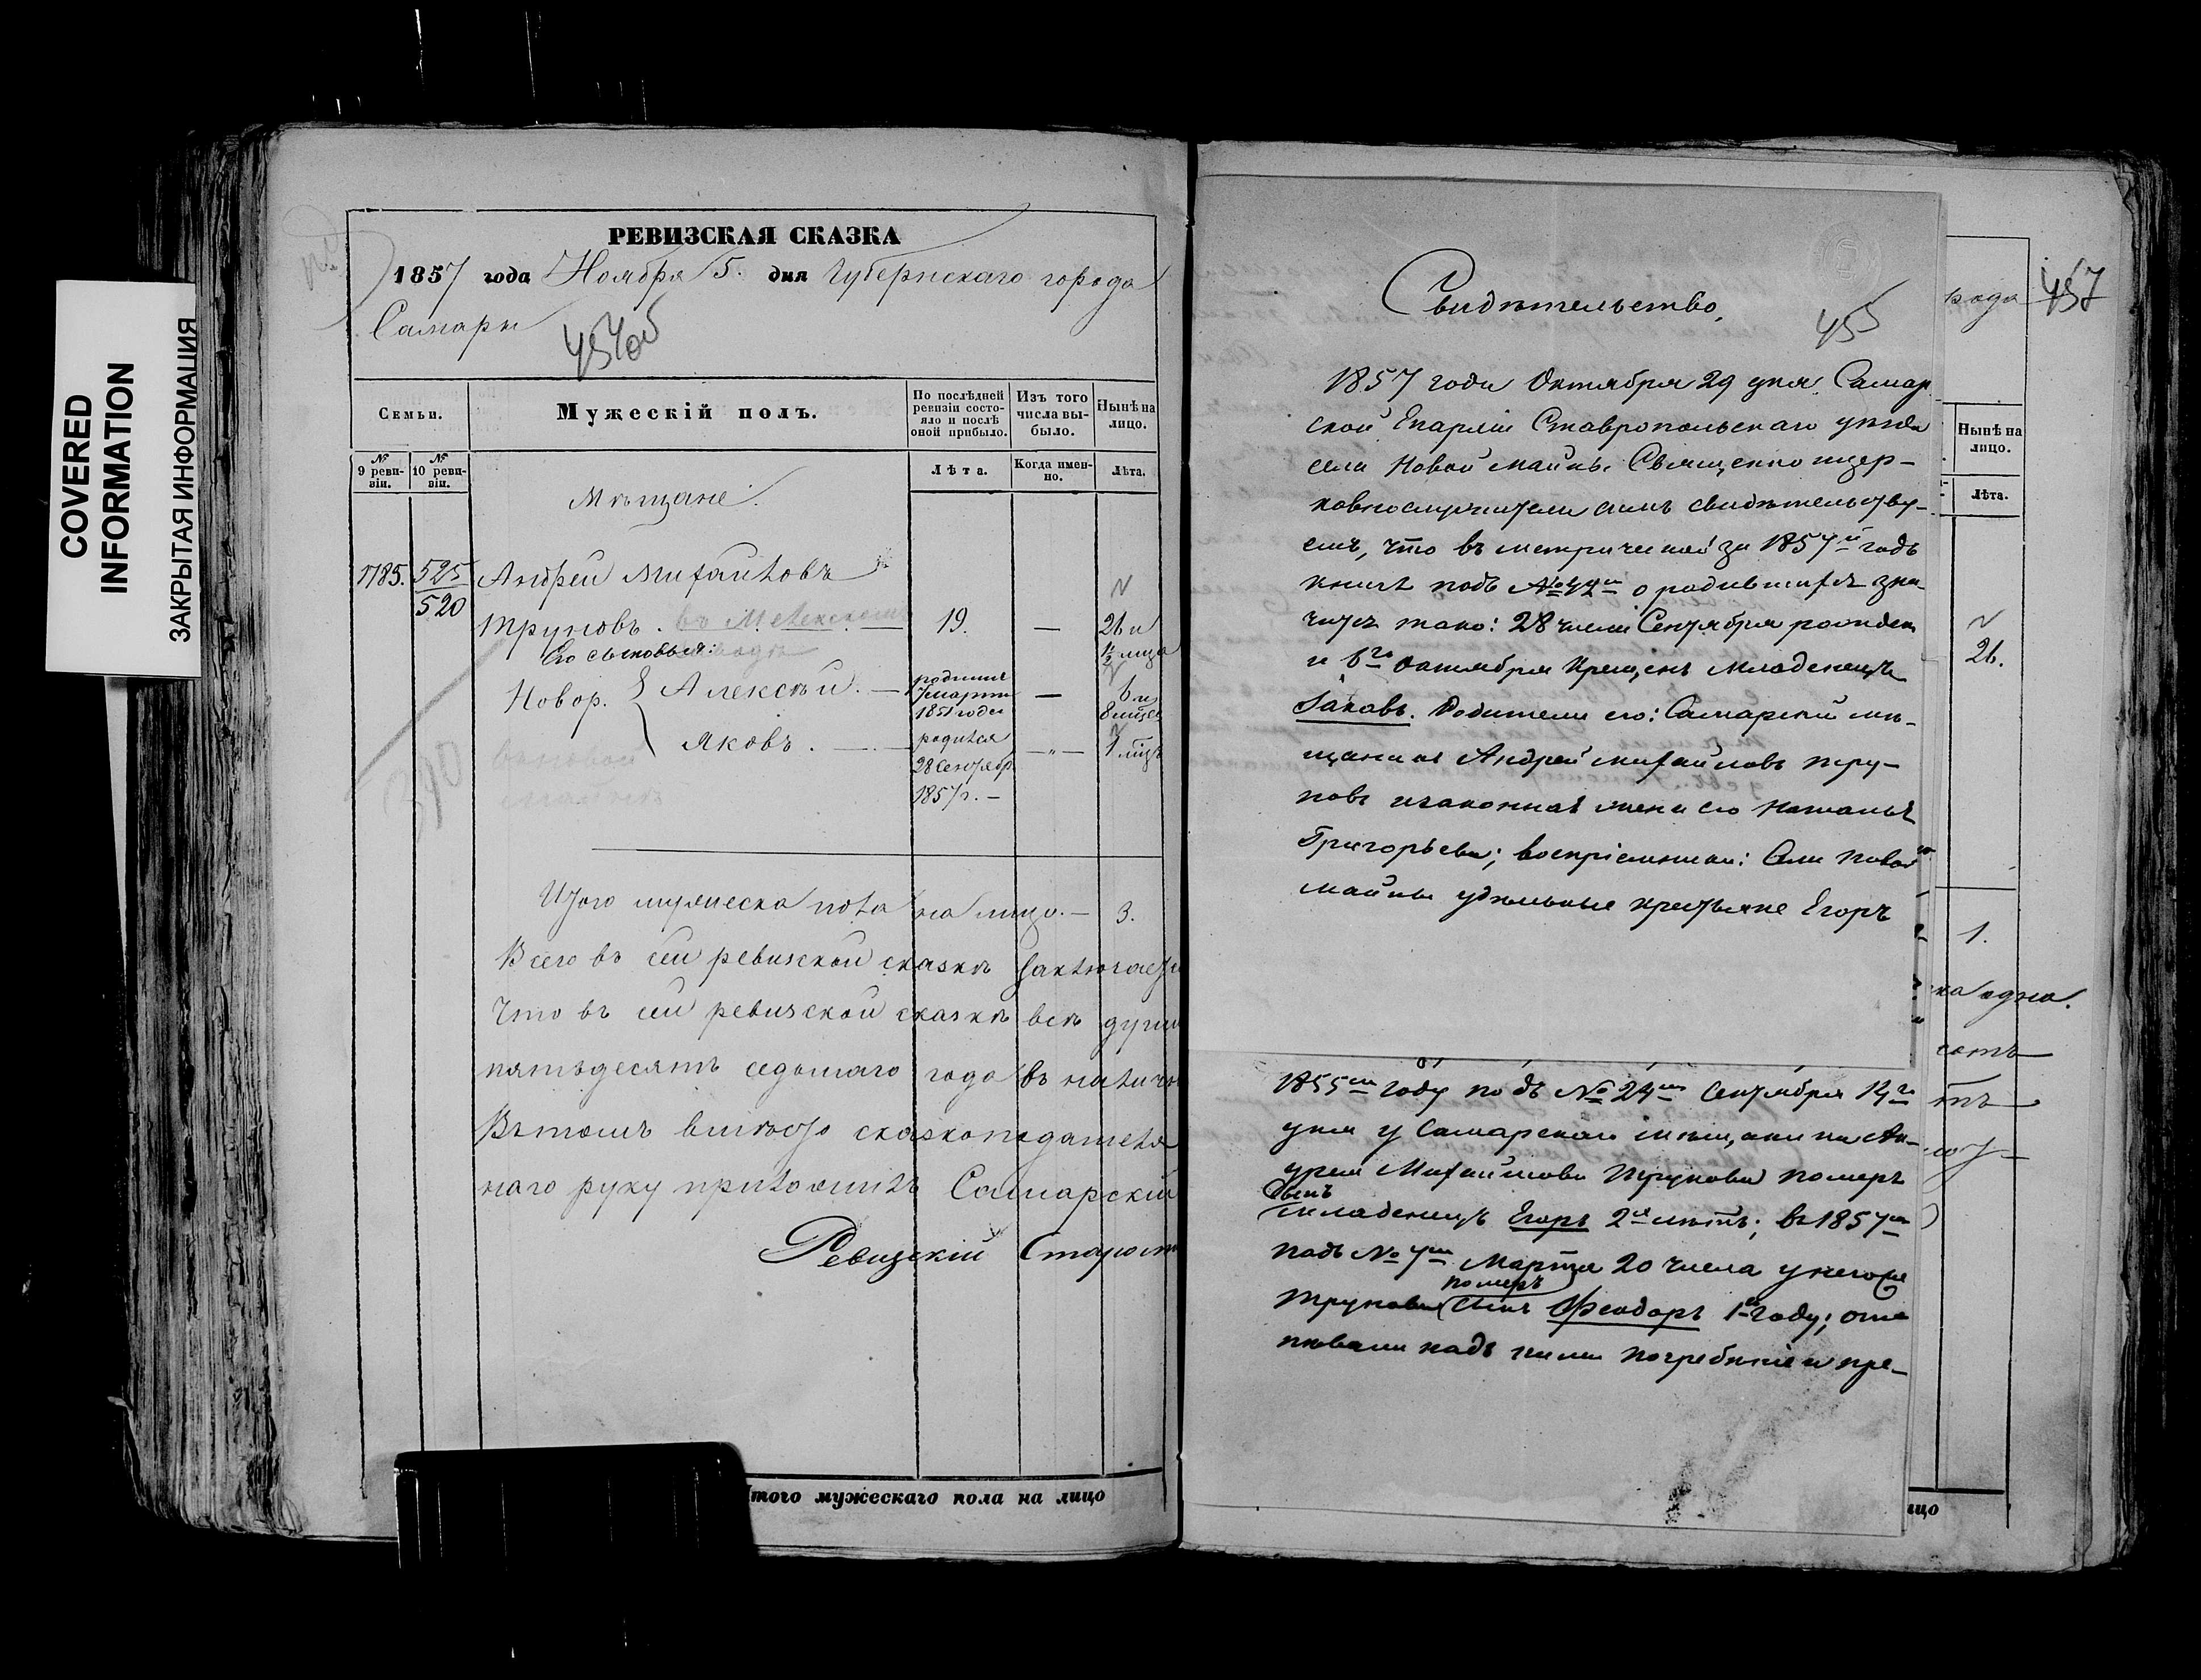 COVERED
INFORMATION
ЗАКРЫТАЯ ИНФОРМАЦИЯ
РЕВИЗСКАЯ СКАЗКА
1857 года Ноября 5. дня Губернскаго города
Самары
454об
Семьи.
Мужескій полъ.
По послѣдней ревизіи состояло и послѣ оной прибыло.
Изъ того числа выбыло.
Нынѣ на лицо.
№ 9 ревизіи.
№ 10 ревизіи.
Лѣта.
Когда именно.
Лѣта.
Мѣщане.
1785. 525 Андрей Михайловъ
520
Труновъ. 19. — 26 и
Его сыновья: ½ мца
Новор. { Алексѣй. — родился 7 марта 1851 года — 6 и 8 мцев
Яковъ. — родился 28 Сентябр 1857 г. — 1 мцъ
390
Итого мужеска пола на лицо. — 3.
Всего въ сей ревизской сказкѣ заключается
Что въ сей ревизской сказкѣ всѣ души
пятьдесятъ седьмаго года въ наличн
Въ томъ вмѣсто сказкоподателя
наго руку приложилъ Самарскій
Ревизскій Старост
Итого мужескаго пола на лицо
Свидѣтельство.
455
1857 года Октября 29 дня Самар
ской Епархіи Ставропольскаго уѣзда
села Новой майны Священно цер-
ковнослужители симъ свидѣтельству-
емъ, что въ метрической за 1857й годъ
книгѣ подъ № о родившихся зна-
читъ тако: 28 числа Сентября рожден
и 6го октября крещенъ младенецъ
Іаковъ. Родители его: Самарскій мѣ-
щанинъ Андрей михайловъ тру-
новъ и законная жена его Наталья
Григорьева; воспріемники: Села новой
майны удѣльные крестьяне Егоръ
1855м году подъ №24м Сентября 14го
дня у Самарскаго мѣщанина Ан-
дрея Михайлова Трунова померъ
сынъ
младенецъ Егоръ 2х лѣтъ; въ 1857м
подъ №7м Марта 20 числа у негоже
померъ
Трунова сынъ Феодоръ 1го году; отпѣ-
ввали надъ ними погребеніе и пре-
рода
457
Нынѣ на лицо.
Лѣта.
26.
1.
одна.
сотъ
тъ
ицо